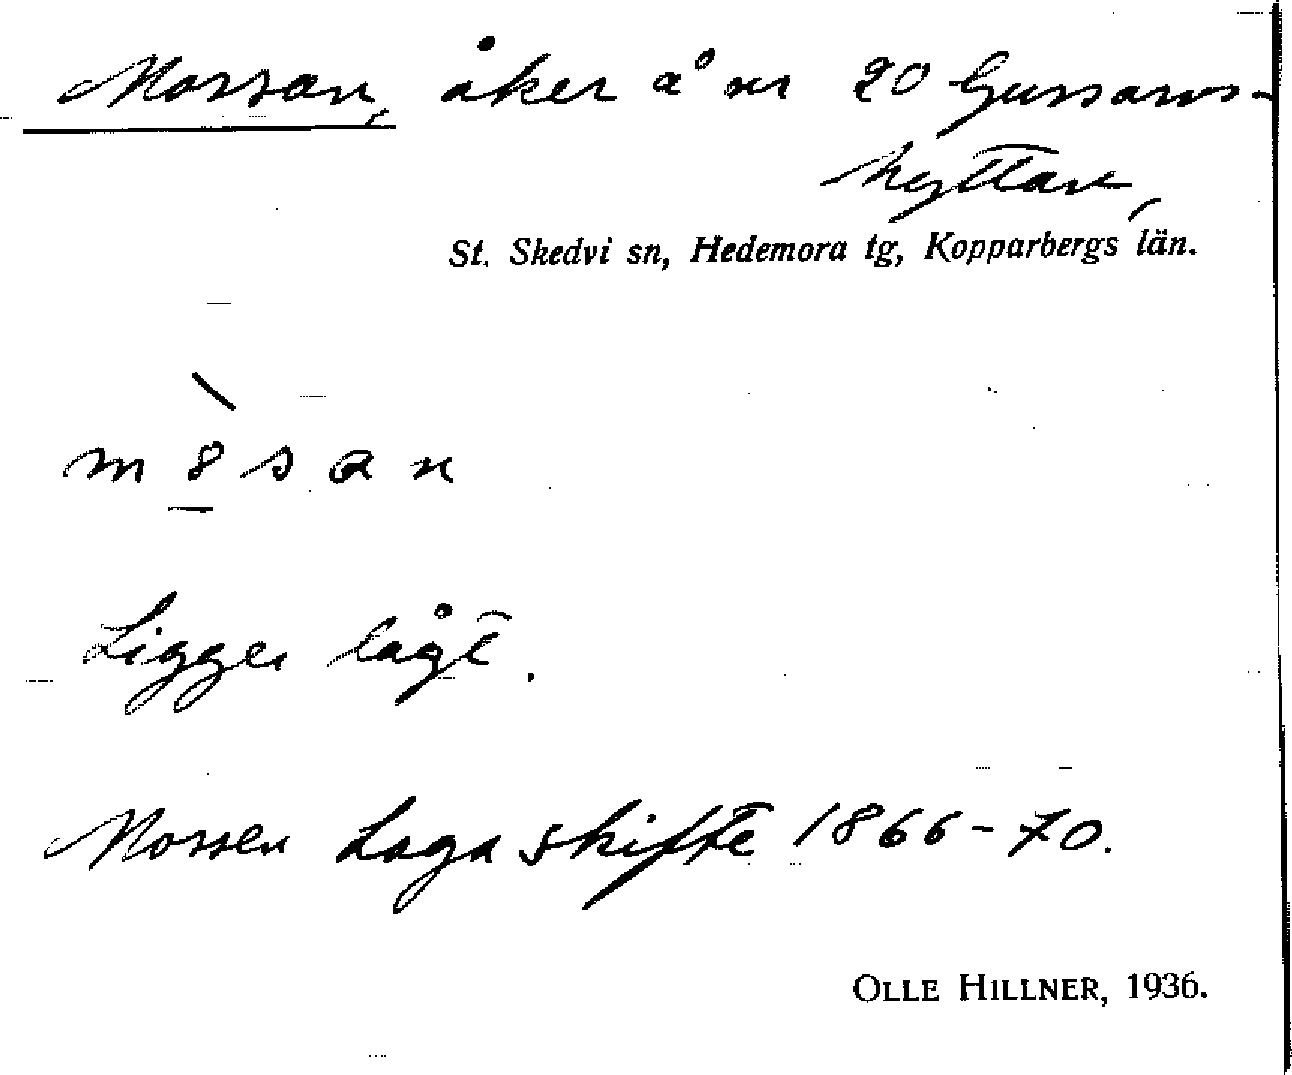 Mossan, åker å nr 20 Gussarvs-
hyttan,
St. Skedvi sn, Hedemora tg, Kopparbergs län.
m 8 s a n
Ligger lågt.
Mossen Laga skifte 1866-70.
OLLE HILLNER, 1936.